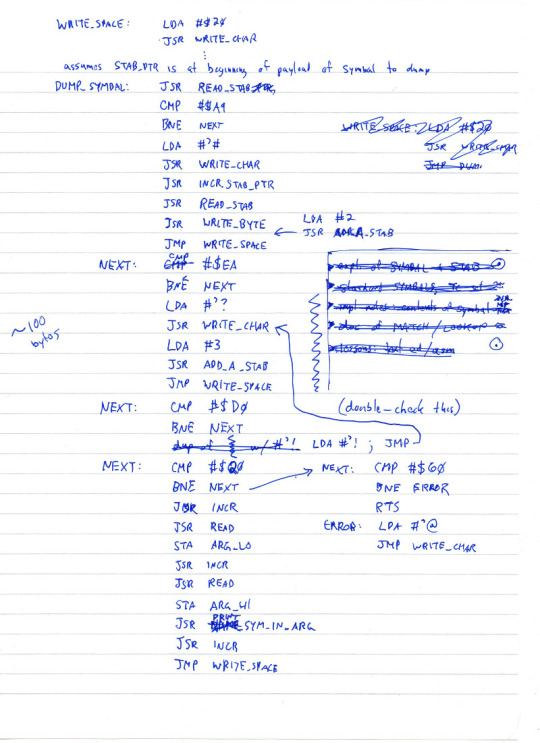 WRITE_SPACE: LDA #$20
JSR WRITE_CHAR
⋮
assumes STAB_PTR is at beginning of payload of symbol to dump
DUMP_SYMBAL: JSR READ_STAB
CMP #$A9
BNE NEXT
WRITE_SPACE: LDA #$20
LDA #'#
JSR WRITE_CHAR
JSR WRITE_CHAR
JMP DUM
JSR INCR_STAB_PTR
JSR READ_STAB
LDA #2
JSR WRITE_BYTE ← JSR ADD_A_STAB
JMP WRITE_SPACE
NEXT: CMP #$EA
expl of SYMBAL & STAB
BNE NEXT
LDA #'?
impl notes: contents of symbol
~100 bytes
JSR WRITE_CHAR
disc of MATCH / LOOKUP
LDA #3
lessons:
JSR ADD_A_STAB
JMP WRITE_SPACE
NEXT: CMP #$D0 (double-check this)
BNE NEXT
dup of w/ #'! LDA #'! ; JMP
NEXT: CMP #$20
BNE NEXT → NEXT: CMP #$60
BNE ERROR
JSR INCR
RTS
JSR READ
ERROR: LDA #'@
STA ARG_LO
JMP WRITE_CHAR
JSR INCR
JSR READ
STA ARG_HI
JSR PRINT SYM_IN_ARG
JSR INCR
JMP WRITE_SPACE